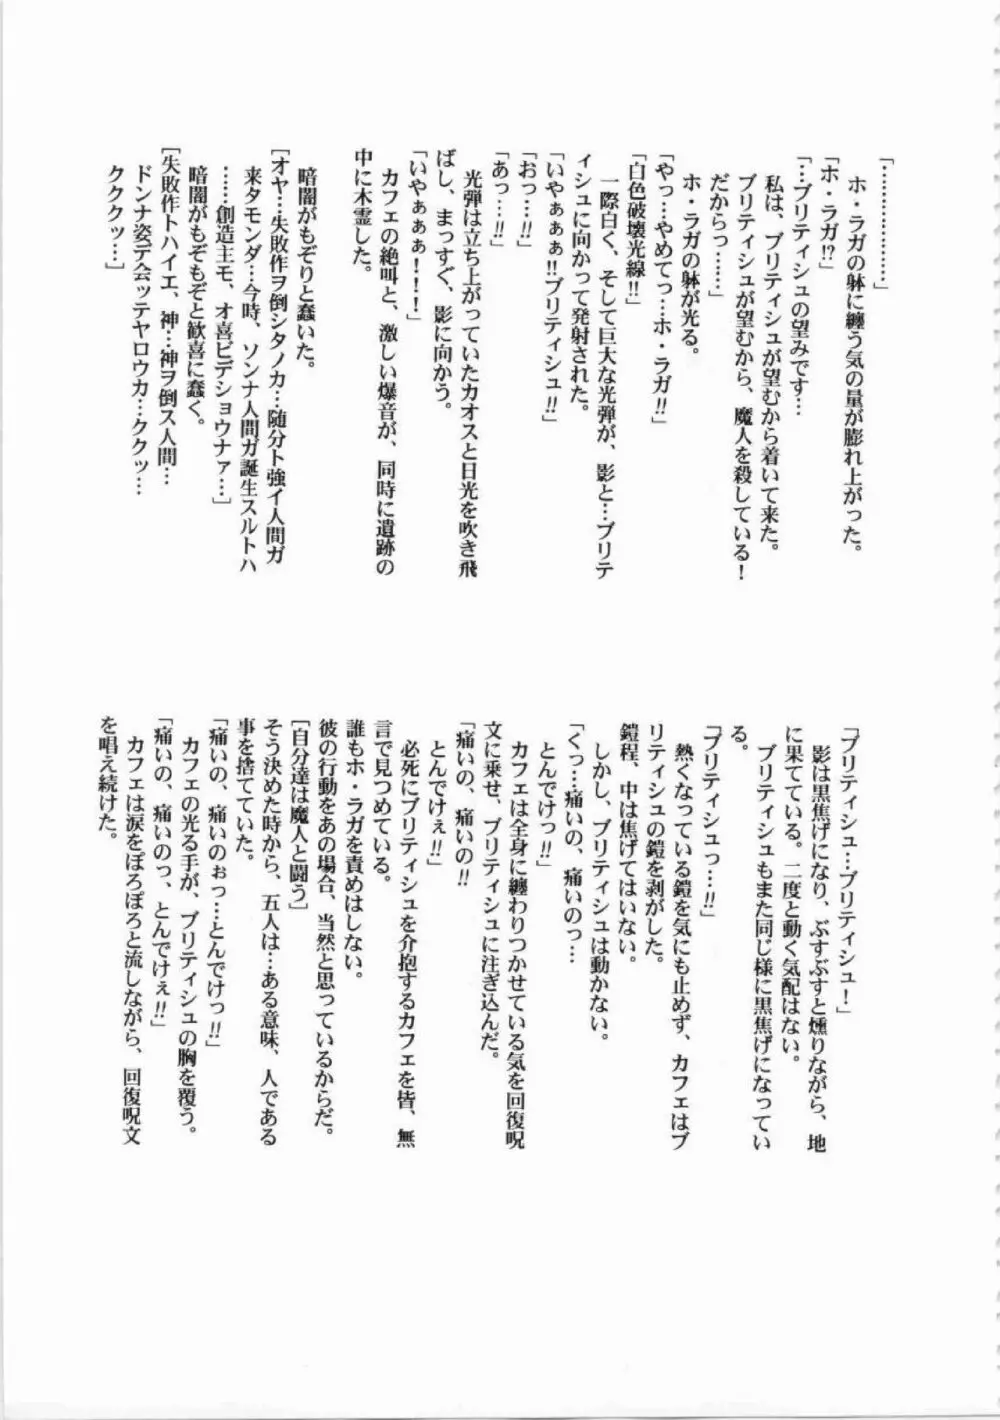 「………………」
ホ・ラガの躰に纏う気の量が膨れ上がった。
「ホ・ラガ!?」
「…ブリティシュの望みです…
私は、ブリティシュが望むから着いて来た。
ブリティシュが望むから、魔人を殺している！
だからっ……」
ホ・ラガの躰が光る。
「やっ……やめてっ…ホ・ラガ!!」
「白色破壊光線!!」
一際白く、そして巨大な光弾が、影と…ブリテ
ィシュに向かって発射された。
「いやぁぁぁ!!ブリティシュ!!」
「おっ…!!」
「あっ…!!」
光弾は立ち上がっていたカオスと日光を吹き飛
ばし、まっすぐ、影に向かう。
「いやぁぁぁ！！！」
カフェの絶叫と、激しい爆音が、同時に遺跡の
中に木霊した。
暗闇がもぞりと蠢いた。
[オヤ…失敗作ヲ倒シタノカ…随分ト強イ人間ガ
来タモンダ…今時、ソンナ人間ガ誕生スルトハ
……創造主モ、オ喜ビデショウナァ…]
暗闇がもぞもぞと歓喜に蠢く。
[失敗作トハイエ、神…神ヲ倒ス人間…
ドンナ姿デ会ッテヤロウカ…ククッ…
ククククッ…]
「ブリティシュ…ブリティシュ！」
影は黒焦げになり、ぶすぶすと燻りながら、地
に果てている。二度と動く気配はない。
ブリティシュもまた同じ様に黒焦げになってい
る。
「ブリティシュっ…!!」
熱くなっている鎧を気にも止めず、カフェはブ
リティシュの鎧を剥がした。
鎧程、中は焦げてはいない。
しかし、ブリティシュは動かない。
「くっ…痛いの、痛いのっ…
とんでけっ!!」
カフェは全身に纏わりつかせている気を回復呪
文に乗せ、ブリティシュに注ぎ込んだ。
「痛いの、痛いの!!
とんでけぇ!!」
必死にブリティシュを介抱するカフェを皆、無
言で見つめている。
誰もホ・ラガを責めはしない。
彼の行動をあの場合、当然と思っているからだ。
[自分達は魔人と闘う]
そう決めた時から、五人は…ある意味、人である
事を捨てていた。
「痛いの、痛いのぉっ…とんでけっ!!」
カフェの光る手が、ブリティシュの胸を覆う。
「痛いの、痛いのっ、とんでけぇ!!」
カフェは涙をぽろぽろと流しながら、回復呪文
を唱え続けた。